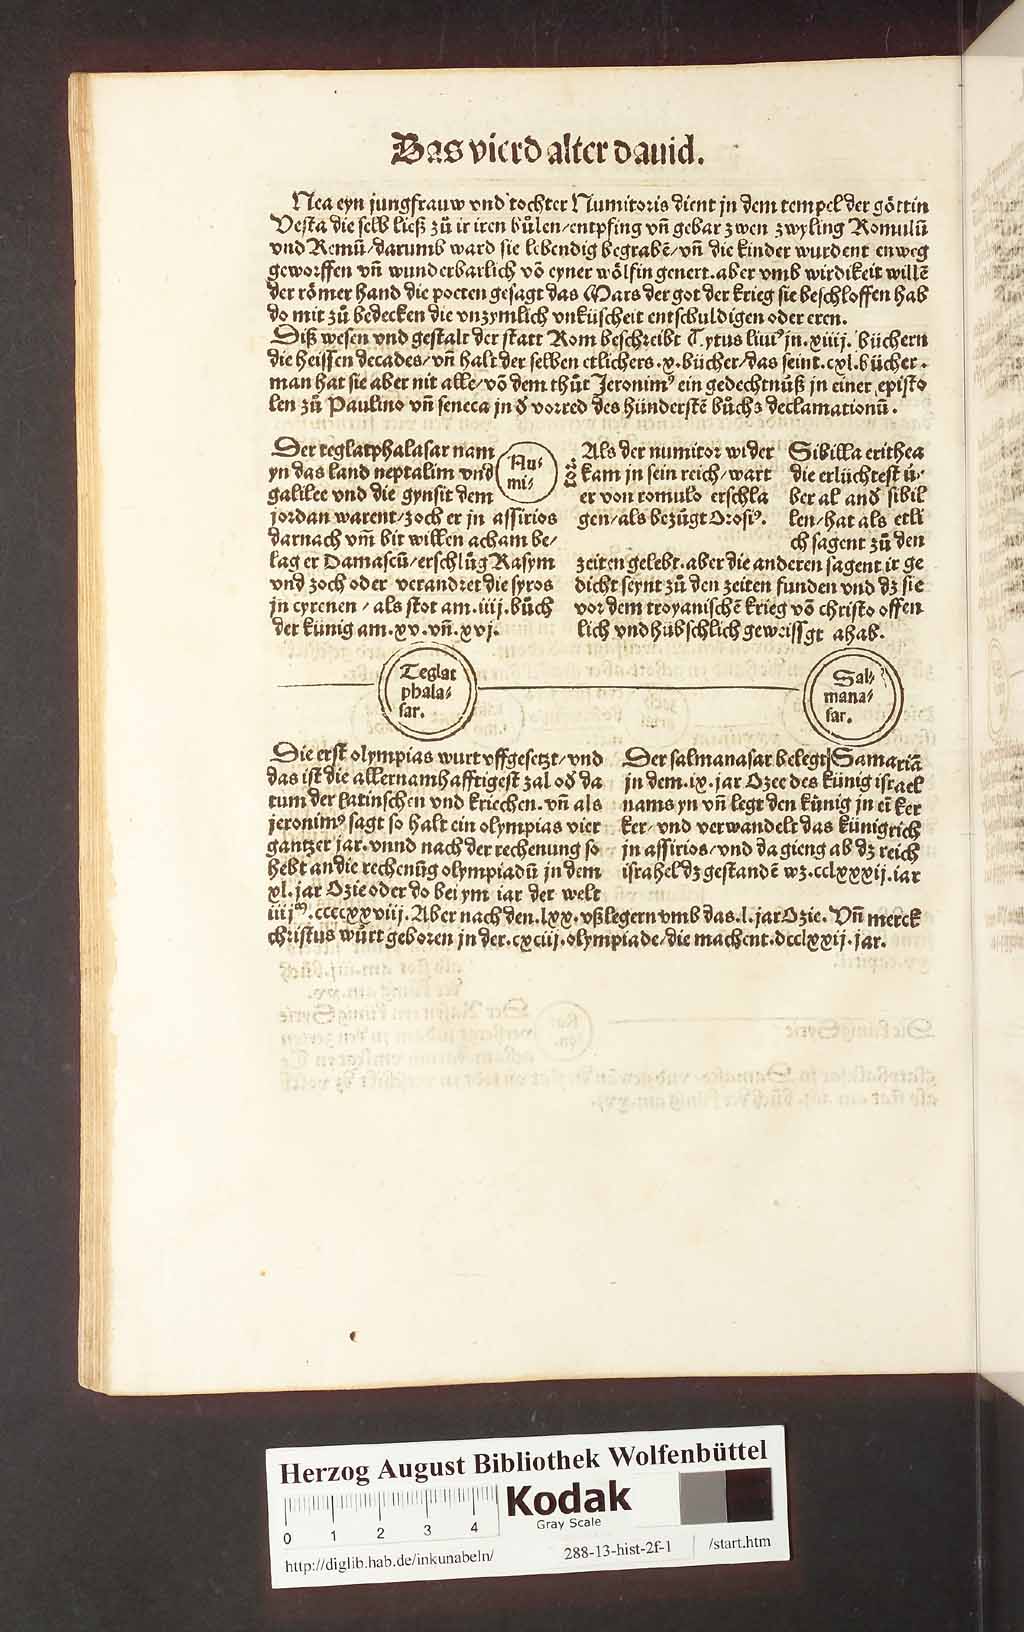 Das vierd alter dauid.
Nea eyn jungfrauw vnd tochter Numitoris dient jn dem tempel der göttin
Vesta die selb ließ zů ir iren bůlen/entpfing vñ gebar zwen zwyling Romulū
vnd Remū/darumb ward sie lebendig begrabē/vñ die kinder wurdent enweg
geworffen vñ wunderbarlich vō eyner wölfin genert.aber vmb wirdikeit willē
der römer hand die poeten gesagt das Mars der got der krieg sie beschloffen hab
do mit zů bedecken die vnzymlich vnküscheit entschuldigen oder eren.
Diß wesen vnd gestalt der statt Rom beschreibt Tytus liuiꝰ jn.xiiij. büchern
die heissen decades/vñ halt der selben etlichers.x.bücher/das seint.cxl.bücher.
man hat sie aber nit alle/vō dem thůt Jeronimꝰ ein gedechtnüß jn einer episto
len zů Paulino vñ seneca jn đ vorred des hünderstē bůchs declamationū.
Der teglatphalasar nam
yn das land neptalim vnd
galilee vnd die gynsit dem
jordan warent/zoch er jn assirios
darnach vm̄ bit willen acham be/
lag er Damascū/erschlůg Rasym
vnd zoch oder verandret die syros
jn cyrenen/als stot am.iiij.bůch
der künig am.xv.vñ.xvj.
Nu-
mi-
tor
Als der numitor wider
kam jn sein reich/wart
er von romulo erschla
gen/als bezügt Orosiꝰ.
Sibilla erithea
die erlüchtest ü-
ber al anđ sibil
len/hat als etli
ch sagent zů den
zeiten gelebt.aber die anderen sagent ir ge
dicht seynt zů den zeiten funden vnd dz sie
vor dem troyanischē krieg vō christo offen
lich vnd hübschlich geweissgt ahab.
Teglat
phala-
sar.
Sal-
mana-
sar.
Die erst olympias wurt vffgesetzt/vnd
das ist die allernamhafftigest zal ođ da
tum der latinschen vnd kriechen.vñ als
jeronimꝰ sagt so halt ein olympias vier
gantzer jar.vnnd nach der rechenung so
hebt an die rechenūg olympiadū jn dem
xl.jar Ozie oder do bei ym iar der welt
iiijᵐ.ccccxxviij.Aber nach den.lxx.vßlegern vmb das.l.jar Ozie. Vñ merck
christus würt geboren jn der.cxciij.olympiade/die machent.dcclxxij.jar.
Der salmanasar belegt Samariā
jn dem.ix.jar Ozee des künig israel
nams yn vñ legt den künig jn eī ker
ker/vnd verwandelt das künigrich
jn assirios/vnd da gieng ab dz reich
israhel dz gestandē wz.cclxxxij.iar
Herzog August Bibliothek Wolfenbüttel
0 1 2 3 4
Kodak
Gray Scale
http://diglib.hab.de/inkunabeln/ 288-13-hist-2f-1 /start.htm